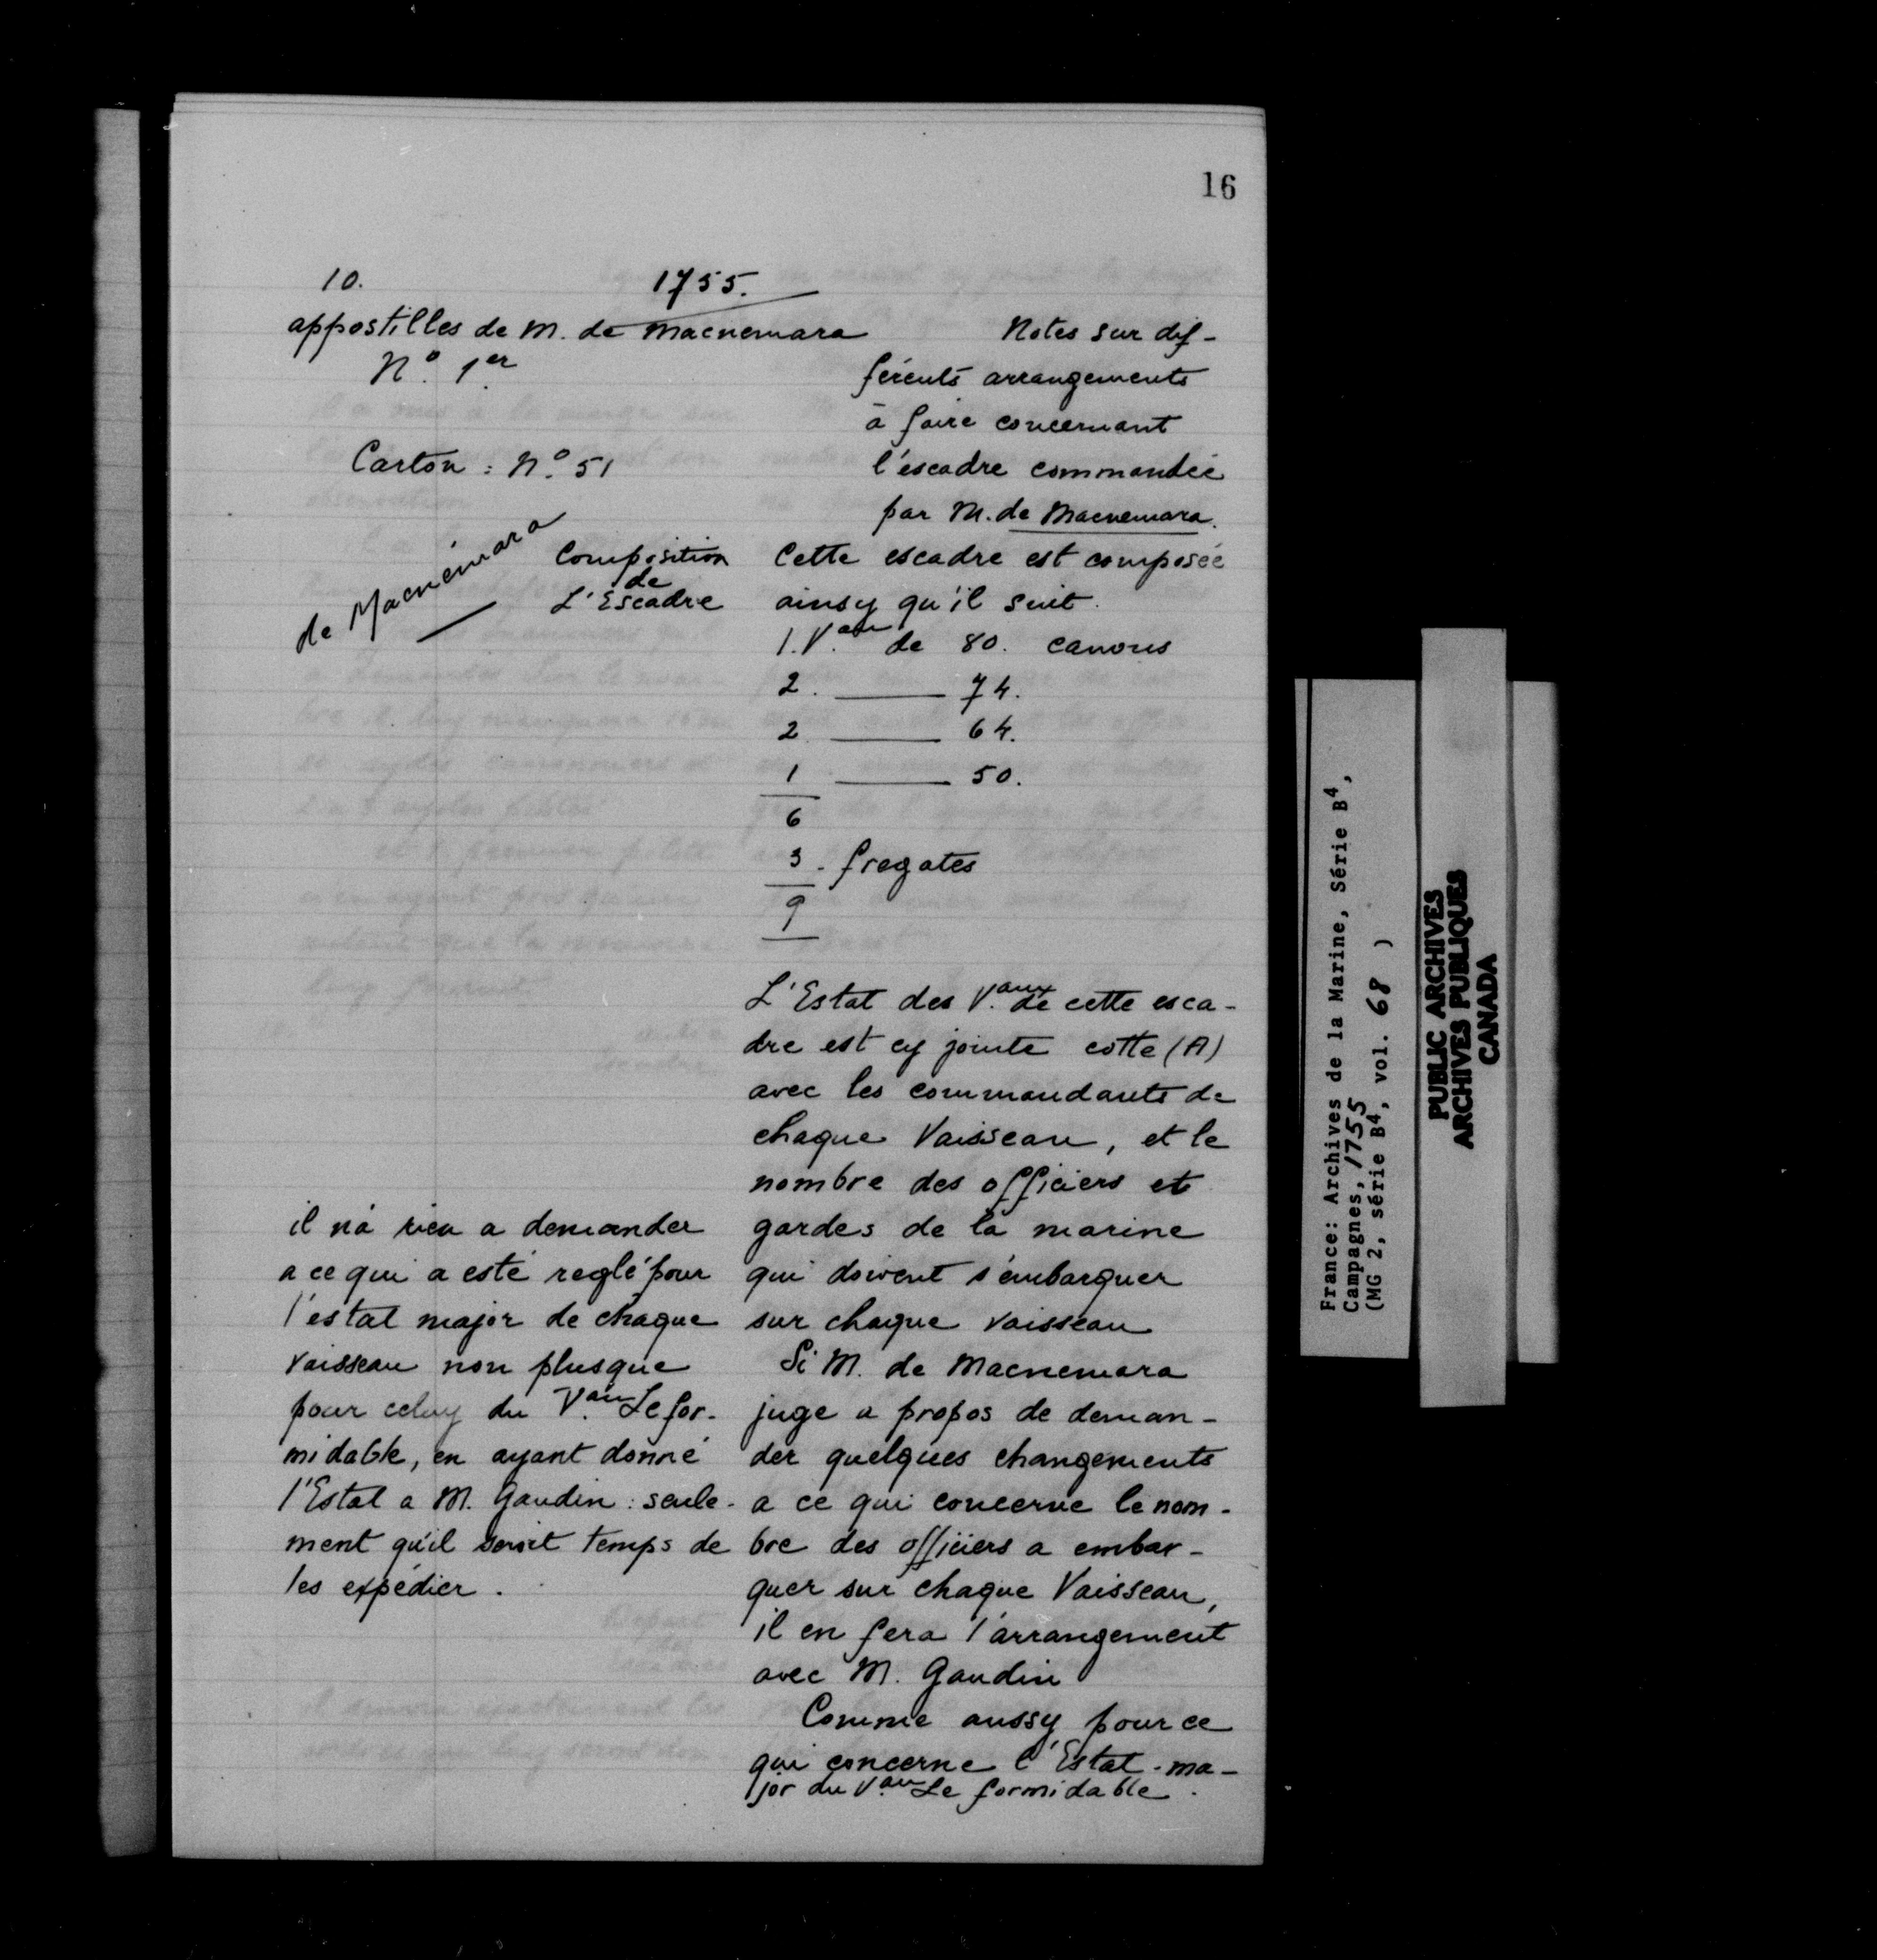 16
10.
1755.
appostilles de M. de Macnemara
N.º 1er
Carton : N.º 51
de Macnémara
Composition
de
L'Escadre
Notes sur dif-
férents arrangements
à faire concernant
l'escadre commandée
par M. de Macnemara.
Cette escadre est composée
ainsy qu'il suit.
1. V.au de 80. canons
2. ——— 74.
2 ——— 64.
1 ——— 50.
6
3 - fregates
9
L'Estat des V.aux de cette esca-
dre est cy jointe cotte (A)
avec les commandants de
chaque Vaisseau, et le
nombre des officiers et
gardes de la marine
qui doivent s'embarquer
sur chaque vaisseau
Si M. de Macnemara
juge a propos de deman-
der quelques changements
a ce qui concerne le nom-
bre des officiers a embar-
quer sur chaque Vaisseau,
il en fera l'arrangement
avec M. Gaudin
Comme aussy pour ce
qui concerne l'Estat-ma-
jor du V.au Le formidable.
il n'a rien a demander
a ce qui a esté reglé pour
l'estat major de chaque
vaisseau non plusque
pour celuy du V.au Le for-
midable, en ayant donné
l'Estat a M. Gaudin : seule-
ment qu'il seroit temps de
les expédier.
France: Archives de la Marine, Série B4,
Campagnes, 1755
(MG 2, série B4, vol. 68 )
PUBLIC ARCHIVES
ARCHIVES PUBLIQUES
CANADA